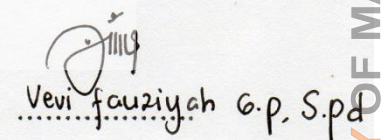 Vevi fauziyah G.p, S.pd
OF MA